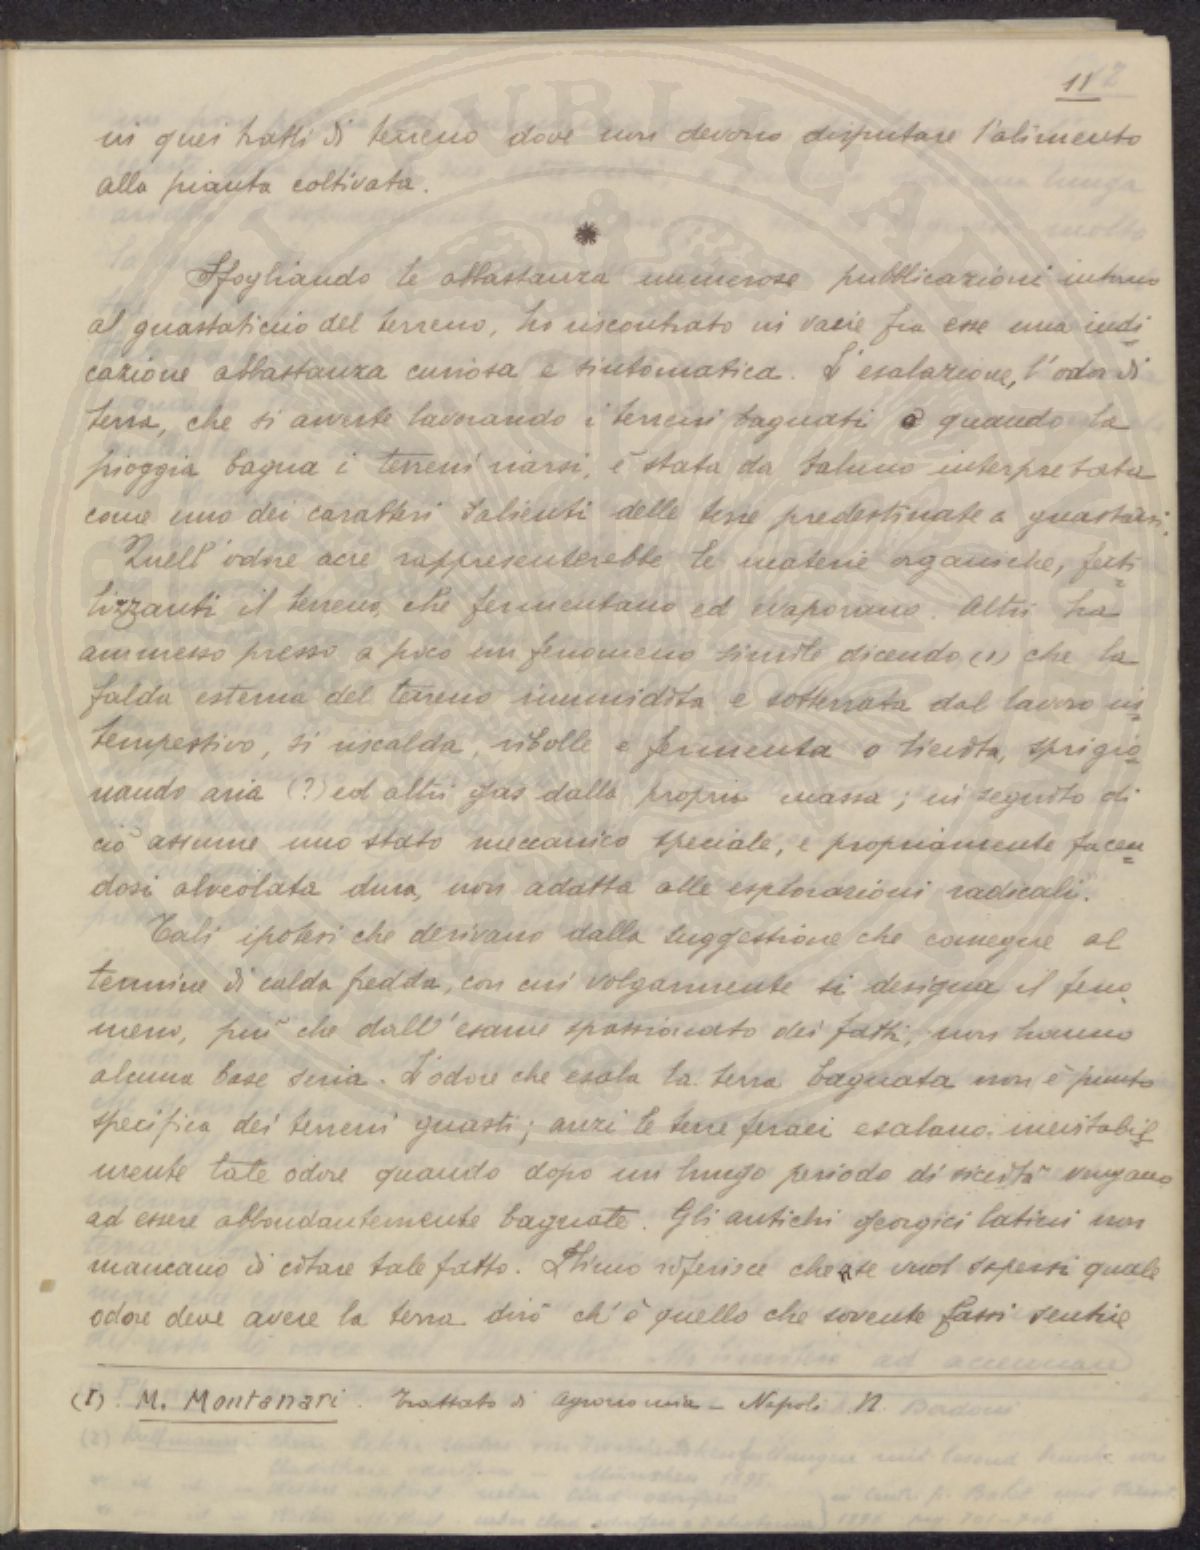 11
in quei tratti di terreno dove non devono disputare l'alimento
alla pianta coltivata.
*
Sfogliando le abbastanza numerose pubblicazioni intorno
al guasta ticcio del terreno, ho riscontrato in varie fra esse una indi
cazione abbastanza curiosa e sintomatica. L'esalazione, l'odor di
terra, che si avverte lavorando i terreni bagnati o quando la
pioggia bagna i terreni riarsi, è stata da taluno interpretata
come uno dei caratteri salienti delle terre predestinate a guastarsi.
Quell'odore acre rappresenterebbe le materie organiche, ferti
lizzanti il terreno, che fermentano ed evaporano. Altri ha
ammesso presso a poco un fenomeno simile dicendo (1) che la
falda esterna del terreno inumidita e sotterrata dal lavoro in
tempestivo, si riscalda, ribolle e fermenta o lievita, sprigio
nando aria (?) ed altri gas dalla propria massa; in seguito di
ciò assume uno stato meccanico speciale, e propriamente facen
dosi alveolata dura, non adatta alle esplorazioni radicali.
Tali ipotesi che derivano dalla suggestione che consegue al
termine di calda fredda, con cui volgarmente si designa il feno
meno, più che dall'esame spassionato dei fatti, non hanno
alcuna base seria. L'odore che esala la terra bagnata non è punto
specifica dei terreni guasti; anzi le terre feraci esalano inevitabil
mente tale odore quando dopo un lungo periodo di siccità vengano
ad essere abbondantemente bagnate. Gli antichi georgici latini non
mancano di citare tale fatto. Plinio riferisce che se vuol sapersi quale
odore deve avere la terra dirò ch'è quello che sovente fassi sentire
(1). M. Montanari. Trattato di Agronomia - Napoli